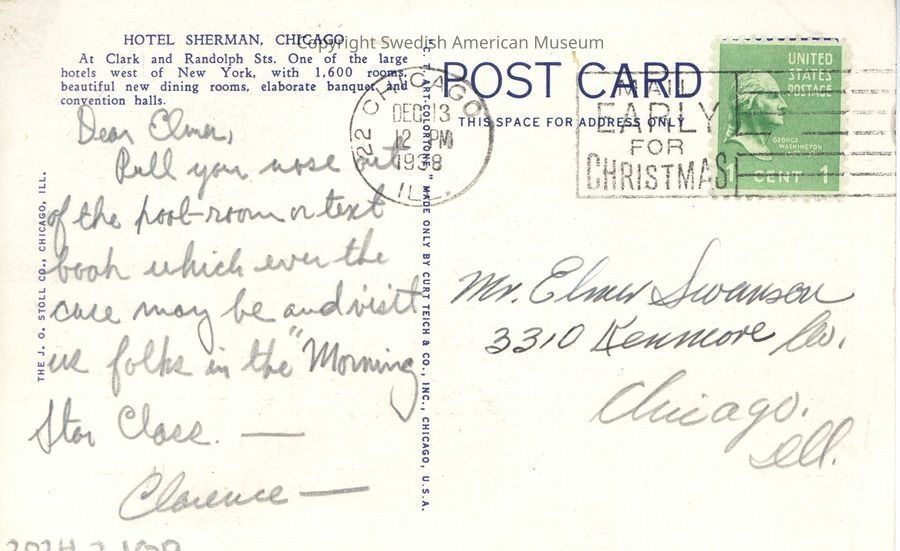 Copyright Swedish American Museum
HOTEL SHERMAN, CHICAGO
At Clark and Randolph Sts. One of the large
hotels west of New York, with 1,600 rooms,
beautiful new dining rooms, elaborate banquet and
convention halls.
Dear Elmer,
Pull your nose out
of the pool-room or text
book which ever the
case may be and visit
us folks in the "Morning
Star Class. —
Clarence —
THE J. O. STOLL CO., CHICAGO, ILL.
C. T. ART-COLORTONE" MADE ONLY BY CURT TEICH & CO., INC., CHICAGO, U.S.A.
POST CARD
THIS SPACE FOR ADDRESS ONLY
CHICAGO
DEC 13
12 PM
1938
ILL.
MAIL
EARLY
FOR
CHRISTMAS
UNITED
STATES
POSTAGE
GEORGE
WASHINGTON
1 CENT 1
Mr. Elmer Swanson
3310 Kenmore Av.
Chicago.
Ill.